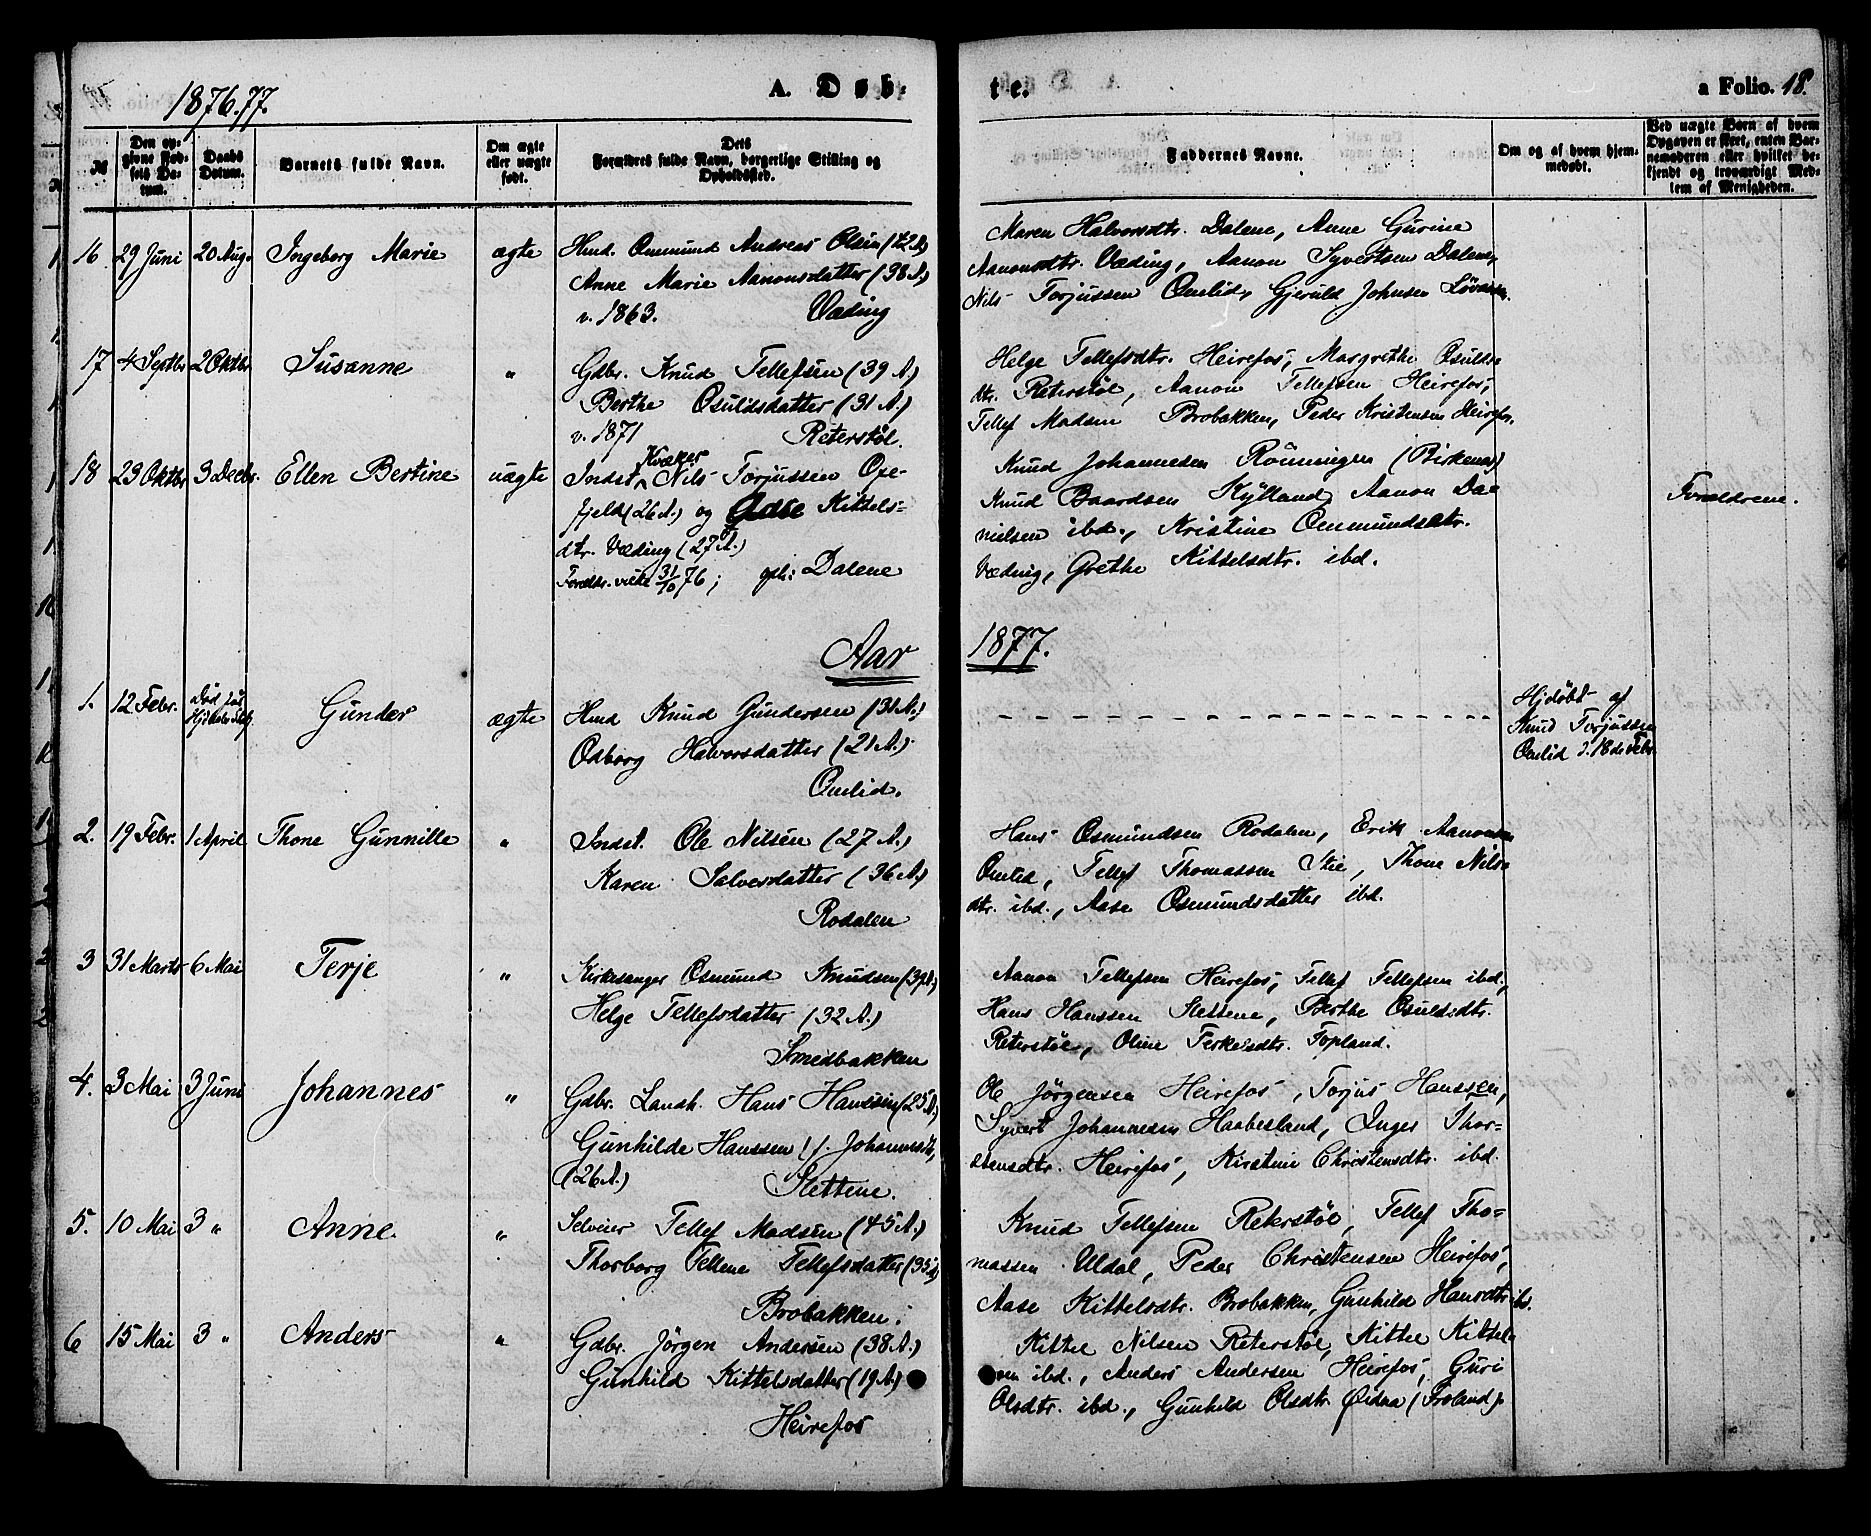 1876.77.
A. Døb-
te.
a Folio. 18.
№
Den op-
givne Fød-
sels Da-
tum.
Daabs
Datum.
Barnets fulde Navn.
Om ægte
eller uægte
født.
Dets
Forældres fulde Navn, borgerlige Stilling og
Opholdssted.
Faddernes Navne.
Om og af hvem hjem-
medøbt.
Ved uægte Børn af hvem
Opgaven er skeet, enten Bar-
nemoderen eller hvilket be-
kjendt og troværdigt Med-
lem af Menigheden.
16 29 Juni 20 Aug. Ingeborg Marie ægte Hmd. Omund Andreas Olsen (42 A)
Anne Marie Aanonsdatter (38 A.)
v. 1863. Væding
Maren Halvorsdtr. Dalene, Anne Gurine
Aanonsdtr. Væding, Aanon Syvertsen Dalene,
Nils Torjussen Omlid, Gjeruld Johnsen
17 4 Septbr 2 Oktbr Susanne " Gdbr. Knud Tellefsen (39 A)
Berthe Osuldsdatter (31 A.)
v. 1871 Reterstøl.
Helge Tellefsdtr. Heirefos, Margrethe Osulds
dtr. Reterstøl, Aanon Tellefsen Heirefos,
Tellef Madsen Brobakken, Peder Kristensen Heirefos.
18 23 Oktbr 3 Decbr. Ellen Bertine uægte Indst. Kvæker Nils Torjussen Ose-
fjeld (26 A.) og Aase Kittels-
dtr. Væding (27 A.)
Foreldr. viede 31/10 76; oph: Dalene
Knud Johannesen Rønningen (Birkenes)
Knud Baardsen Kylland, Aanon Da-
nielsen ibd., Kristine Ommundsdtr.
Væding, Grethe Kittelsdtr. ibd.
Forældrene.
Aar
1877.
1. 12 Febr. Død før Gunder ægte Hmd Knud Gundersen (31 A.)
Osborg Halvorsdatter (21 A.)
Omlid.
Hjdøbt af
Knud Torjussen
Omlid d. 18de Febr.
2. 19 Febr. 1 April Thone Gunnille " Indst. Ole Nilsen (27 A.)
Karen Salvesdatter (36 A.)
Rodalen
Hans Osmundsen Rodalen, Erik Aanonsen
Omlid, Tellef Thomassen Stie, Thone Nils-
dtr. ibd., Aase Osmundsdatter ibd.
3 31 Marts 6 Mai Terje " Kirkesanger Osmund Knudsen (39 A.)
Helge Tellefsdatter (32 A.)
Smedbakken
Aanon Tellefsen Heirefos, Tellef Tellefsen ibd.,
Hans Hanssen Slettene, Berthe Osuldsdtr.
Reterstøl, Oline Terkelsdtr. Topland.
4. 3 Mai 3 Juni Johannes " Gdbr. Landh. Hans Hanssen (25 A.)
Gunhilde Hanssen f. Johannesdtr,
(26 A.) Slettene.
Ole Jørgensen Heirefos, Torjus Hanssen,
Syvert Johannesen Haabesland, Inger Thor-
stensdtr. Heirefos, Kirstine Christensdtr. ibd.
5. 10 Mai 3 " Anne " Selveier Tellef Madsen (45 A.)
Thorborg Tellene Tellefsdatter (35 A)
Brobakken.
Knud Tellefsen Reterstøl, Tellef Tho-
massen Uldal, Peder Christensen Heirefos,
Aase Kittelsdtr. Brobakken, Gunhild Hansdtr. ibd.
6 15 Mai 3 " Anders " Gdbr. Jørgen Andersen (38 A.)
Gunhild Kittelsdatter (19 A.)
Heirefos
Kittel Nilsen Reterstøl, Kittel Kittel-
sen ibd., Anders Andersen Heirefos, Guri
Olsdtr. ibd., Gunhild Olsdtr. Øidna (Froland).